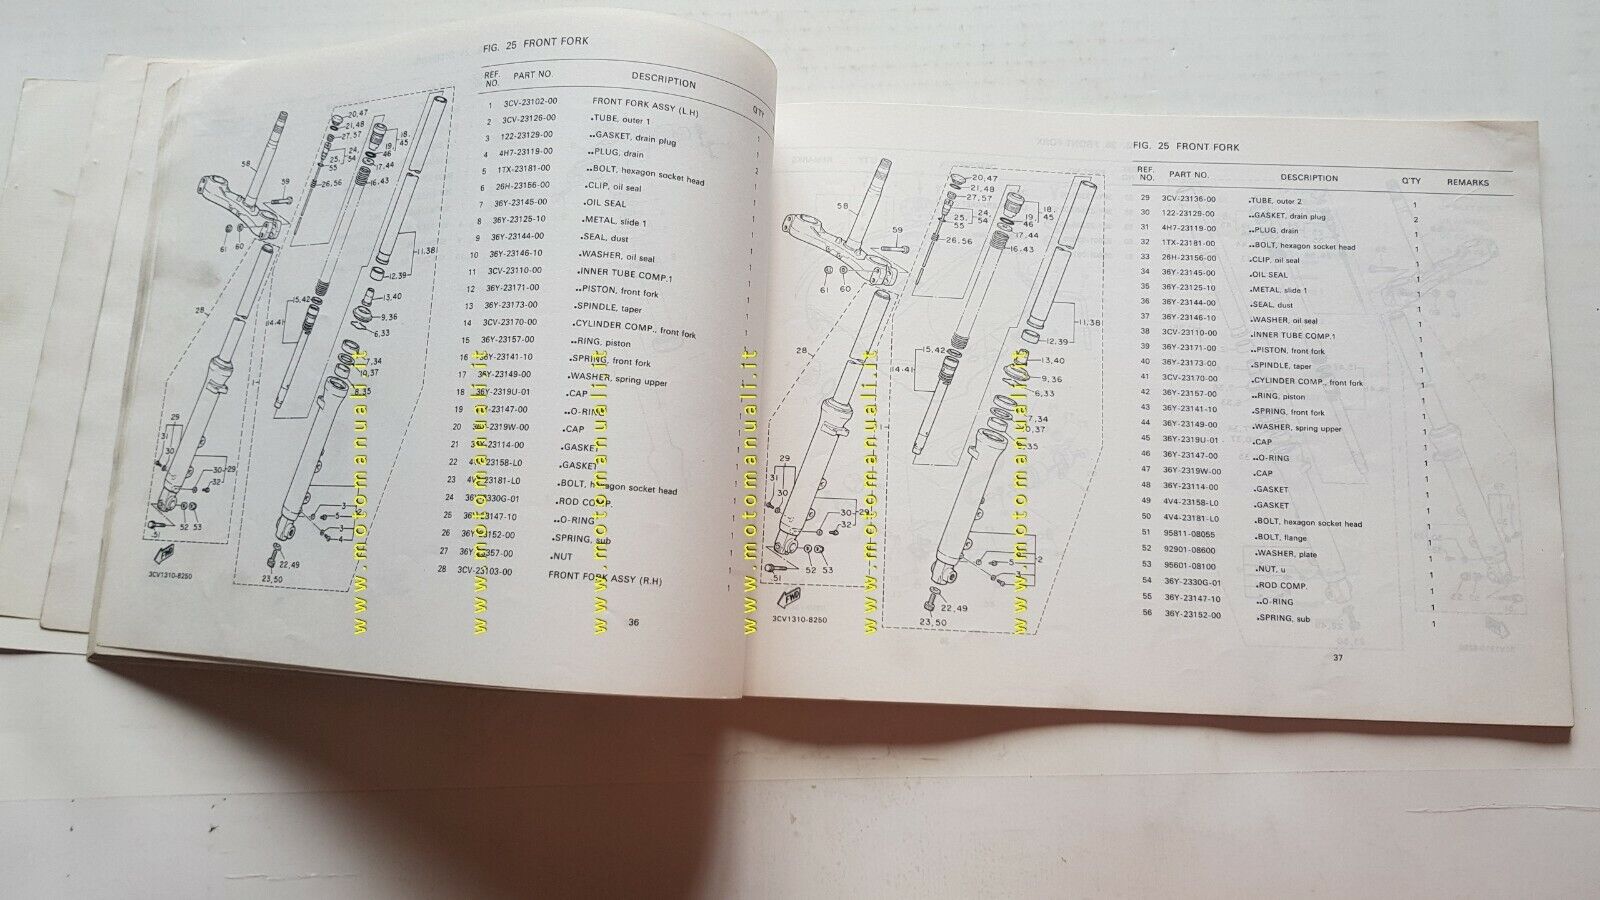 FIG. 25 FRONT FORK
REF. NO. PART NO. DESCRIPTION Q'TY
1 3CV-23102-00 FRONT FORK ASSY (L.H) 1
2 3CV-23126-00 .TUBE, outer 1
3 122-23129-00 ..GASKET, drain plug
4 4H7-23119-00 ..PLUG, drain
5 1TX-23181-00 ..BOLT, hexagon socket head
6 26H-23156-00 .CLIP, oil seal
7 36Y-23145-00 .OIL SEAL
8 36Y-23125-10 .METAL, slide 1
9 36Y-23144-00 .SEAL, dust
10 36Y-23146-10 .WASHER, oil seal
11 3CV-23110-00 .INNER TUBE COMP.1
12 36Y-23171-00 ..PISTON, front fork
13 36Y-23173-00 .SPINDLE, taper
14 3CV-23170-00 .CYLINDER COMP., front fork
15 36Y-23157-00 ..RING, piston
16 36Y-23141-10 .SPRING, front fork
17 36Y-23149-00 .WASHER, spring upper
18 36Y-2319U-01 .CAP
19 36Y-23147-00 ..O-RING
20 36Y-2319W-00 .CAP
21 36Y-23114-00 .GASKET
22 4V4-23158-L0 .GASKET
23 4V4-23181-L0 .BOLT, hexagon socket head
24 36Y-2330G-01 .ROD COMP.
25 36Y-23147-10 ..O-RING
26 36Y-23152-00 .SPRING, sub
27 36Y-23357-00 .NUT
28 3CV-23103-00 FRONT FORK ASSY (R.H)
20,47
21,48
27,57
25, 24,
55 54
26,56
18,
19, 45
46
17,44
16,43
58
59
61 60
11,38
12,39
13,40
9,36
6,33
15,42
14-41
28
7,34
10,37
8,35
29
31
30
30 29
32
52 53
51
22,49
23,50
FWD
3CV1310-8250
36
FIG. 25 FRONT FORK
REF. NO. PART NO. DESCRIPTION Q'TY REMARKS
29 3CV-23136-00 .TUBE, outer 2 1
30 122-23129-00 ..GASKET, drain plug 2
31 4H7-23119-00 ..PLUG, drain 1
32 1TX-23181-00 ..BOLT, hexagon socket head 1
33 26H-23156-00 .CLIP, oil seal 1
34 36Y-23145-00 .OIL SEAL 1
35 36Y-23125-10 .METAL, slide 1 1
36 36Y-23144-00 .SEAL, dust 1
37 36Y-23146-10 .WASHER, oil seal 1
38 3CV-23110-00 .INNER TUBE COMP.1 1
39 36Y-23171-00 ..PISTON, front fork 1
40 36Y-23173-00 .SPINDLE, taper 1
41 3CV-23170-00 .CYLINDER COMP., front fork 1
42 36Y-23157-00 ..RING, piston 1
43 36Y-23141-10 .SPRING, front fork 1
44 36Y-23149-00 .WASHER, spring upper 1
45 36Y-2319U-01 .CAP 1
46 36Y-23147-00 ..O-RING 1
47 36Y-2319W-00 .CAP 1
48 36Y-23114-00 .GASKET 1
49 4V4-23158-L0 .GASKET 1
50 4V4-23181-L0 .BOLT, hexagon socket head 1
51 95811-08055 .BOLT, flange 1
52 92901-08600 .WASHER, plate 1
53 95601-08100 .NUT, u 1
54 36Y-2330G-01 .ROD COMP. 1
55 36Y-23147-10 ..O-RING 1
56 36Y-23152-00 .SPRING, sub 1
20,47
21,48
27,57
25, 24,
55 54
26,56
18,
19, 45
46
17,44
16,43
58
59
61 60
11,38
12,39
13,40
9,36
6,33
15,42
14-41
28
7,34
10,37
8,35
29
31
30
30 29
32
52 53
51
22,49
23,50
FWD
3CV1310-8250
37
www.motomanuali.it
www.motomanuali.it
www.motomanuali.it
www.motomanuali.it
www.motomanuali.it
www.motomanuali.it